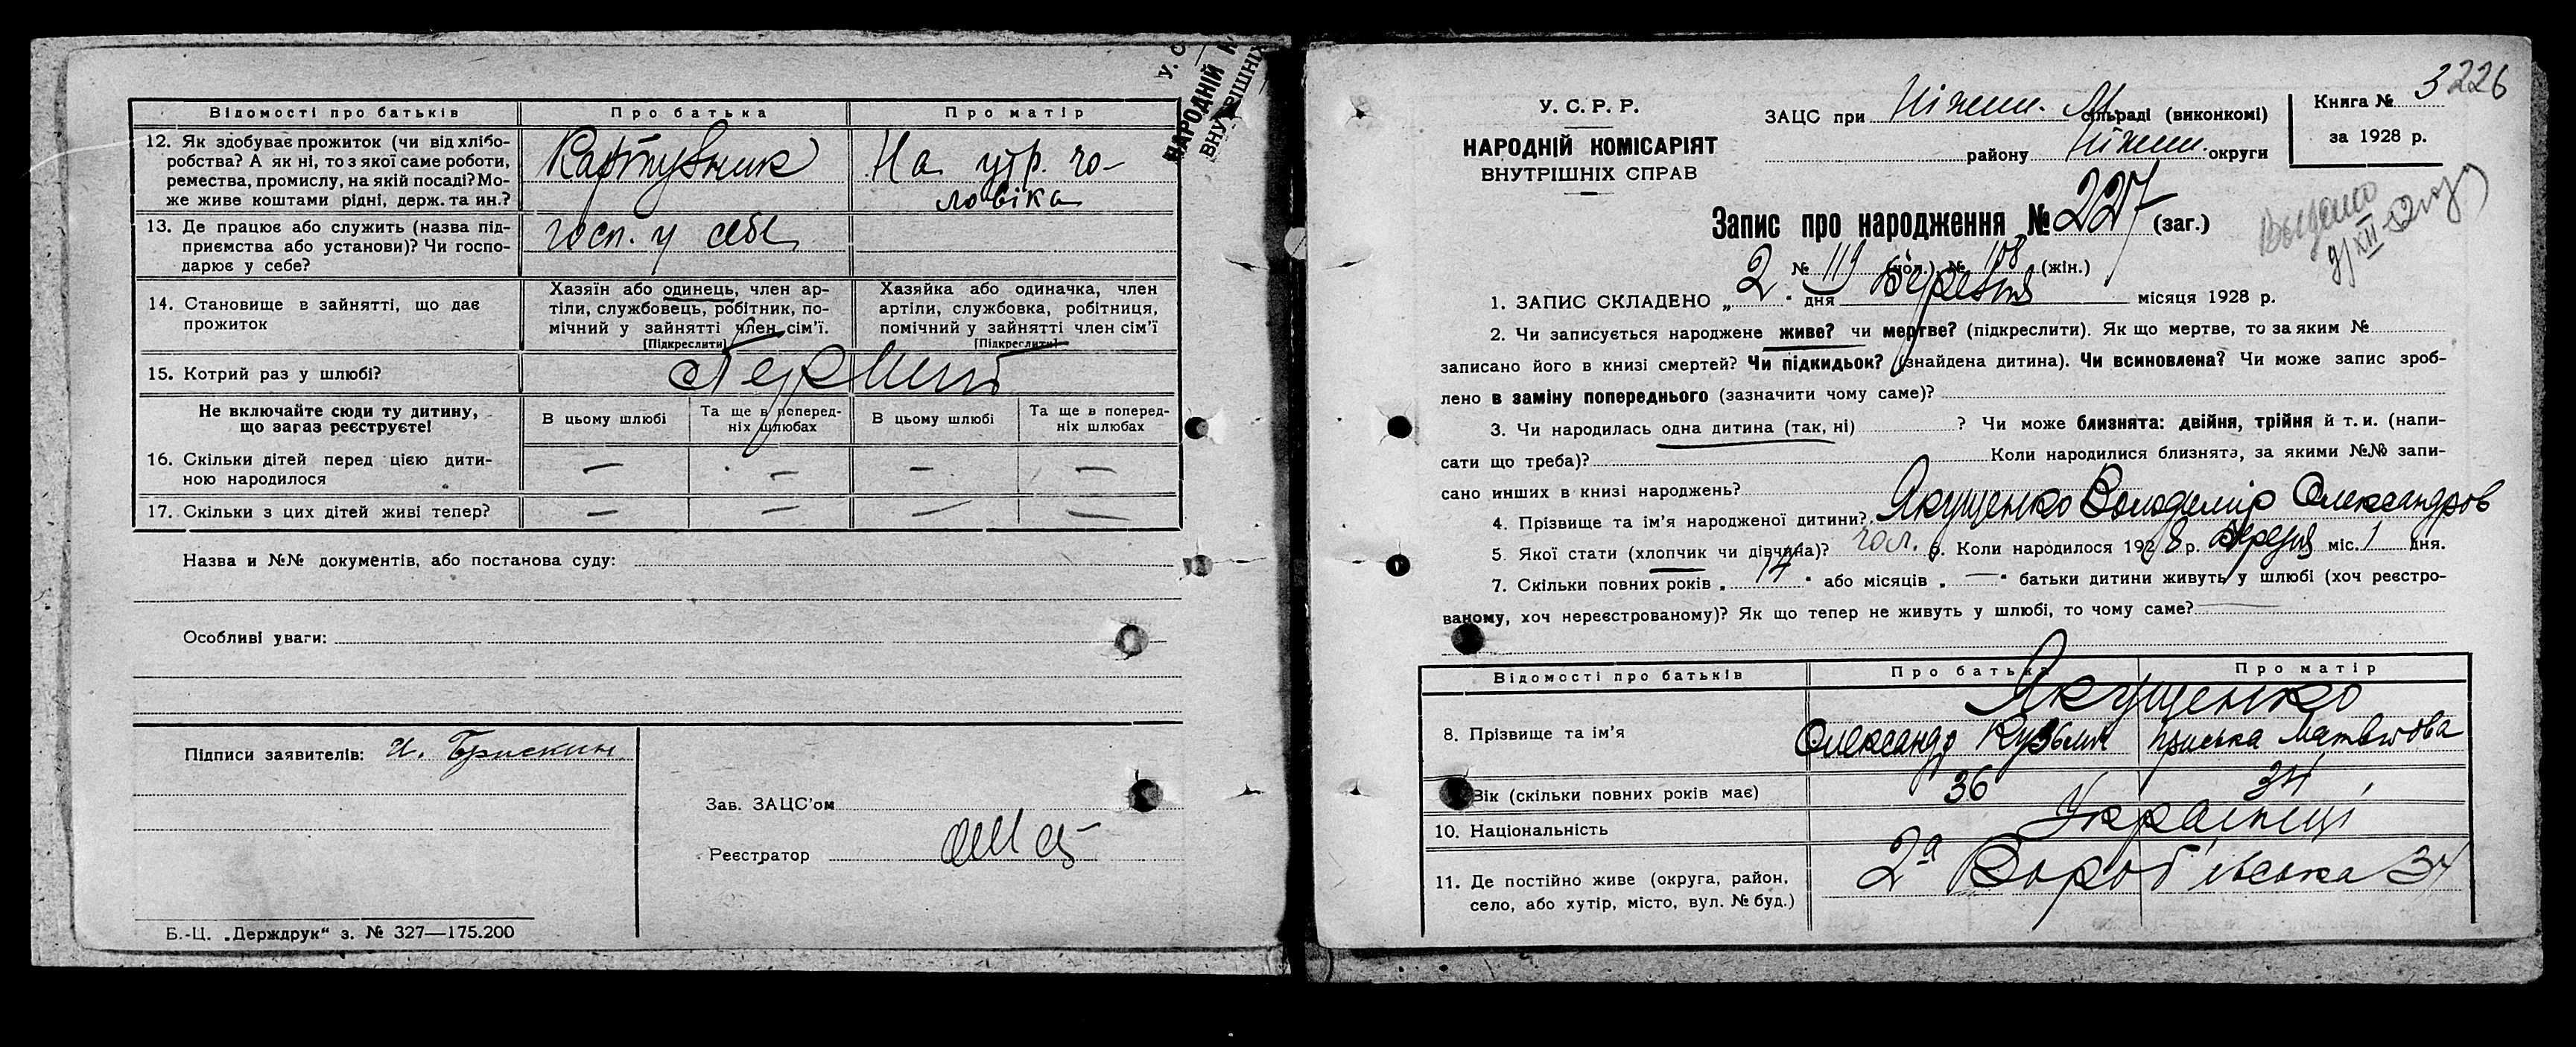 У. С
НАРОДНІЙ К
ВНУТРІШНІХ
Відомості про батьків
Про батька
Про матір
12. Як здобуває прожиток (чи від хлібо-
робства? А як ні, то з якої саме роботи,
ремества, промислу, на якій посаді? Мо-
же живе коштами рідні, держ. та ин.?
Картузник
На утр. чо-
ловіка
13. Де працює або служить (назва під-
приємства або установи)? Чи госпо-
дарює у себе?
госп. у себе
14. Становище в зайнятті, що дає
прожиток
Хазяїн або одинець, член ар-
тіли, службовець, робітник, по-
мічний у зайнятті член сім'ї.
[Підкреслити]
Хазяйка або одиначка, член
артіли, службовка, робітниця,
помічний у зайнятті член сім'ї
[Підкреслити]
15. Котрий раз у шлюбі?
Перший
Не включайте сюди ту дитину,
що загаз реєструєте!
В цьому шлюбі
Та ще в поперед-
ніх шлюбах
В цьому шлюбі
Та ще в поперед-
ніх шлюбах
16. Скільки дітей перед цією дити-
ною народилося
— — — —
17. Скільки з цих дітей живі тепер?
— — — —
Назва и №№ документів, або постанова суду:
Особливі уваги:
Підписи заявителів: И. Брискин
Зав. ЗАЦС'ом
Реєстратор
Б.-Ц. „Держдрук“ з. № 327—175.200
У. С. Р. Р.
НАРОДНІЙ КОМІСАРІЯТ
ВНУТРІШНІХ СПРАВ
ЗАЦС при Ніжин. М. сільраді (виконкомі)
району Ніжин. округи
Книга № 3
226
за 1928 р.
Запис про народження № 227 (заг.)
№ 119 (чол.) № 108 (жін.)
1. ЗАПИС СКЛАДЕНО „ 2 “ дня Березня місяця 1928 р.
2. Чи записується народжене живе? чи мертве? (підкреслити). Як що мертве, то за яким №
записано його в книзі смертей? Чи підкидьок? (знайдена дитина). Чи всиновлена? Чи може запис зроб-
лено в заміну попереднього (зазначити чому саме)?
3. Чи народилась одна дитина (так, ні) ? Чи може близнята: двійня, трійня й т. и. (напи-
сати що треба)? Коли народилися близнята, за якими №№ запи-
сано инших в книзі народжень?
4. Прізвище та ім'я народженої дитини? Якущенко Володимір Олександров
5. Якої стати (хлопчик чи дівчина)? чол. 6. Коли народилося 1928 р. Березня міс. 1 дня.
7. Скільки повних років „ 14 “ або місяців „ — “ батьки дитини живуть у шлюбі (хоч реєстро-
ваному, хоч нереєстрованому)? Як що тепер не живуть у шлюбі, то чому саме?
Відомості про батьків
Про батька
Про матір
Якущенко
8. Прізвище та ім'я
Олександр Кузьмич
Матвієвова
Вік (скільки повних років має)
36
34
10. Національність
Українці
11. Де постійно живе (округа, район,
село, або хутір, місто, вул. № буд.)
2а Вороб'ївська 34